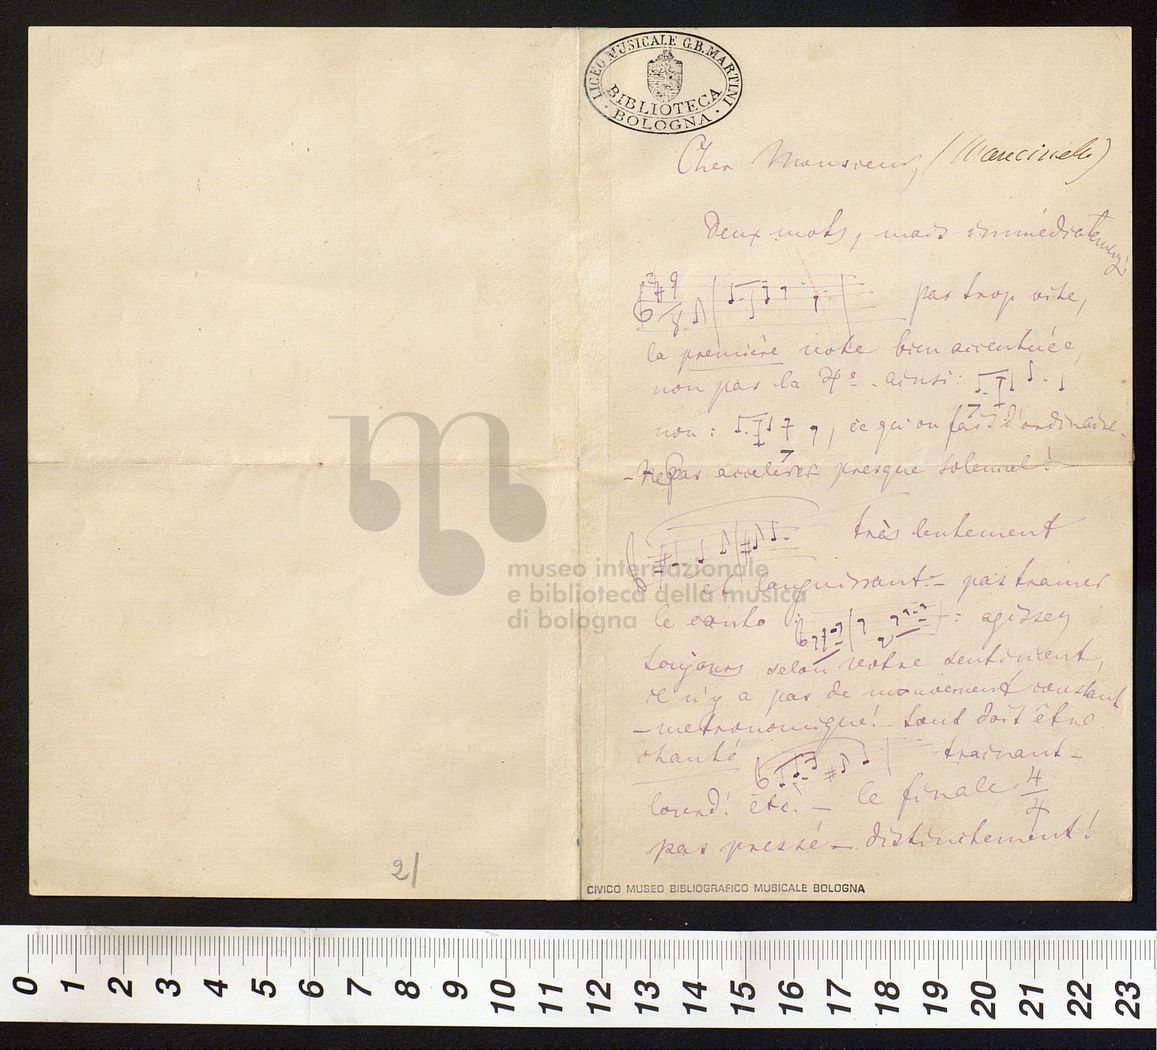 LICEO MUSICALE G.B. MARTINI
BIBLIOTECA
BOLOGNA
Cher Monsieur, (Mancinelli)
Deux mots, mais immédiatement!
9
8
pas trop vite,
la première note bien accentuée,
non pas la 4e. ainsi:
non: , ce qu'on fait d'ordinaire.
– Ne pas accelérer presque solennel! –
très lentement
et languissant – pas trainer
le canto : agissez
toujours selon votre sentiment,
il n'y a pas de mouvement constant
– metronomique! – tout doit être
chanté trainant –
lourd! etc. – le finale 4/4
pas pressé – distinctement!
museo internazionale
e biblioteca della musica
di bologna
2/
CIVICO MUSEO BIBLIOGRAFICO MUSICALE BOLOGNA
0 1 2 3 4 5 6 7 8 9 10 11 12 13 14 15 16 17 18 19 20 21 22 23